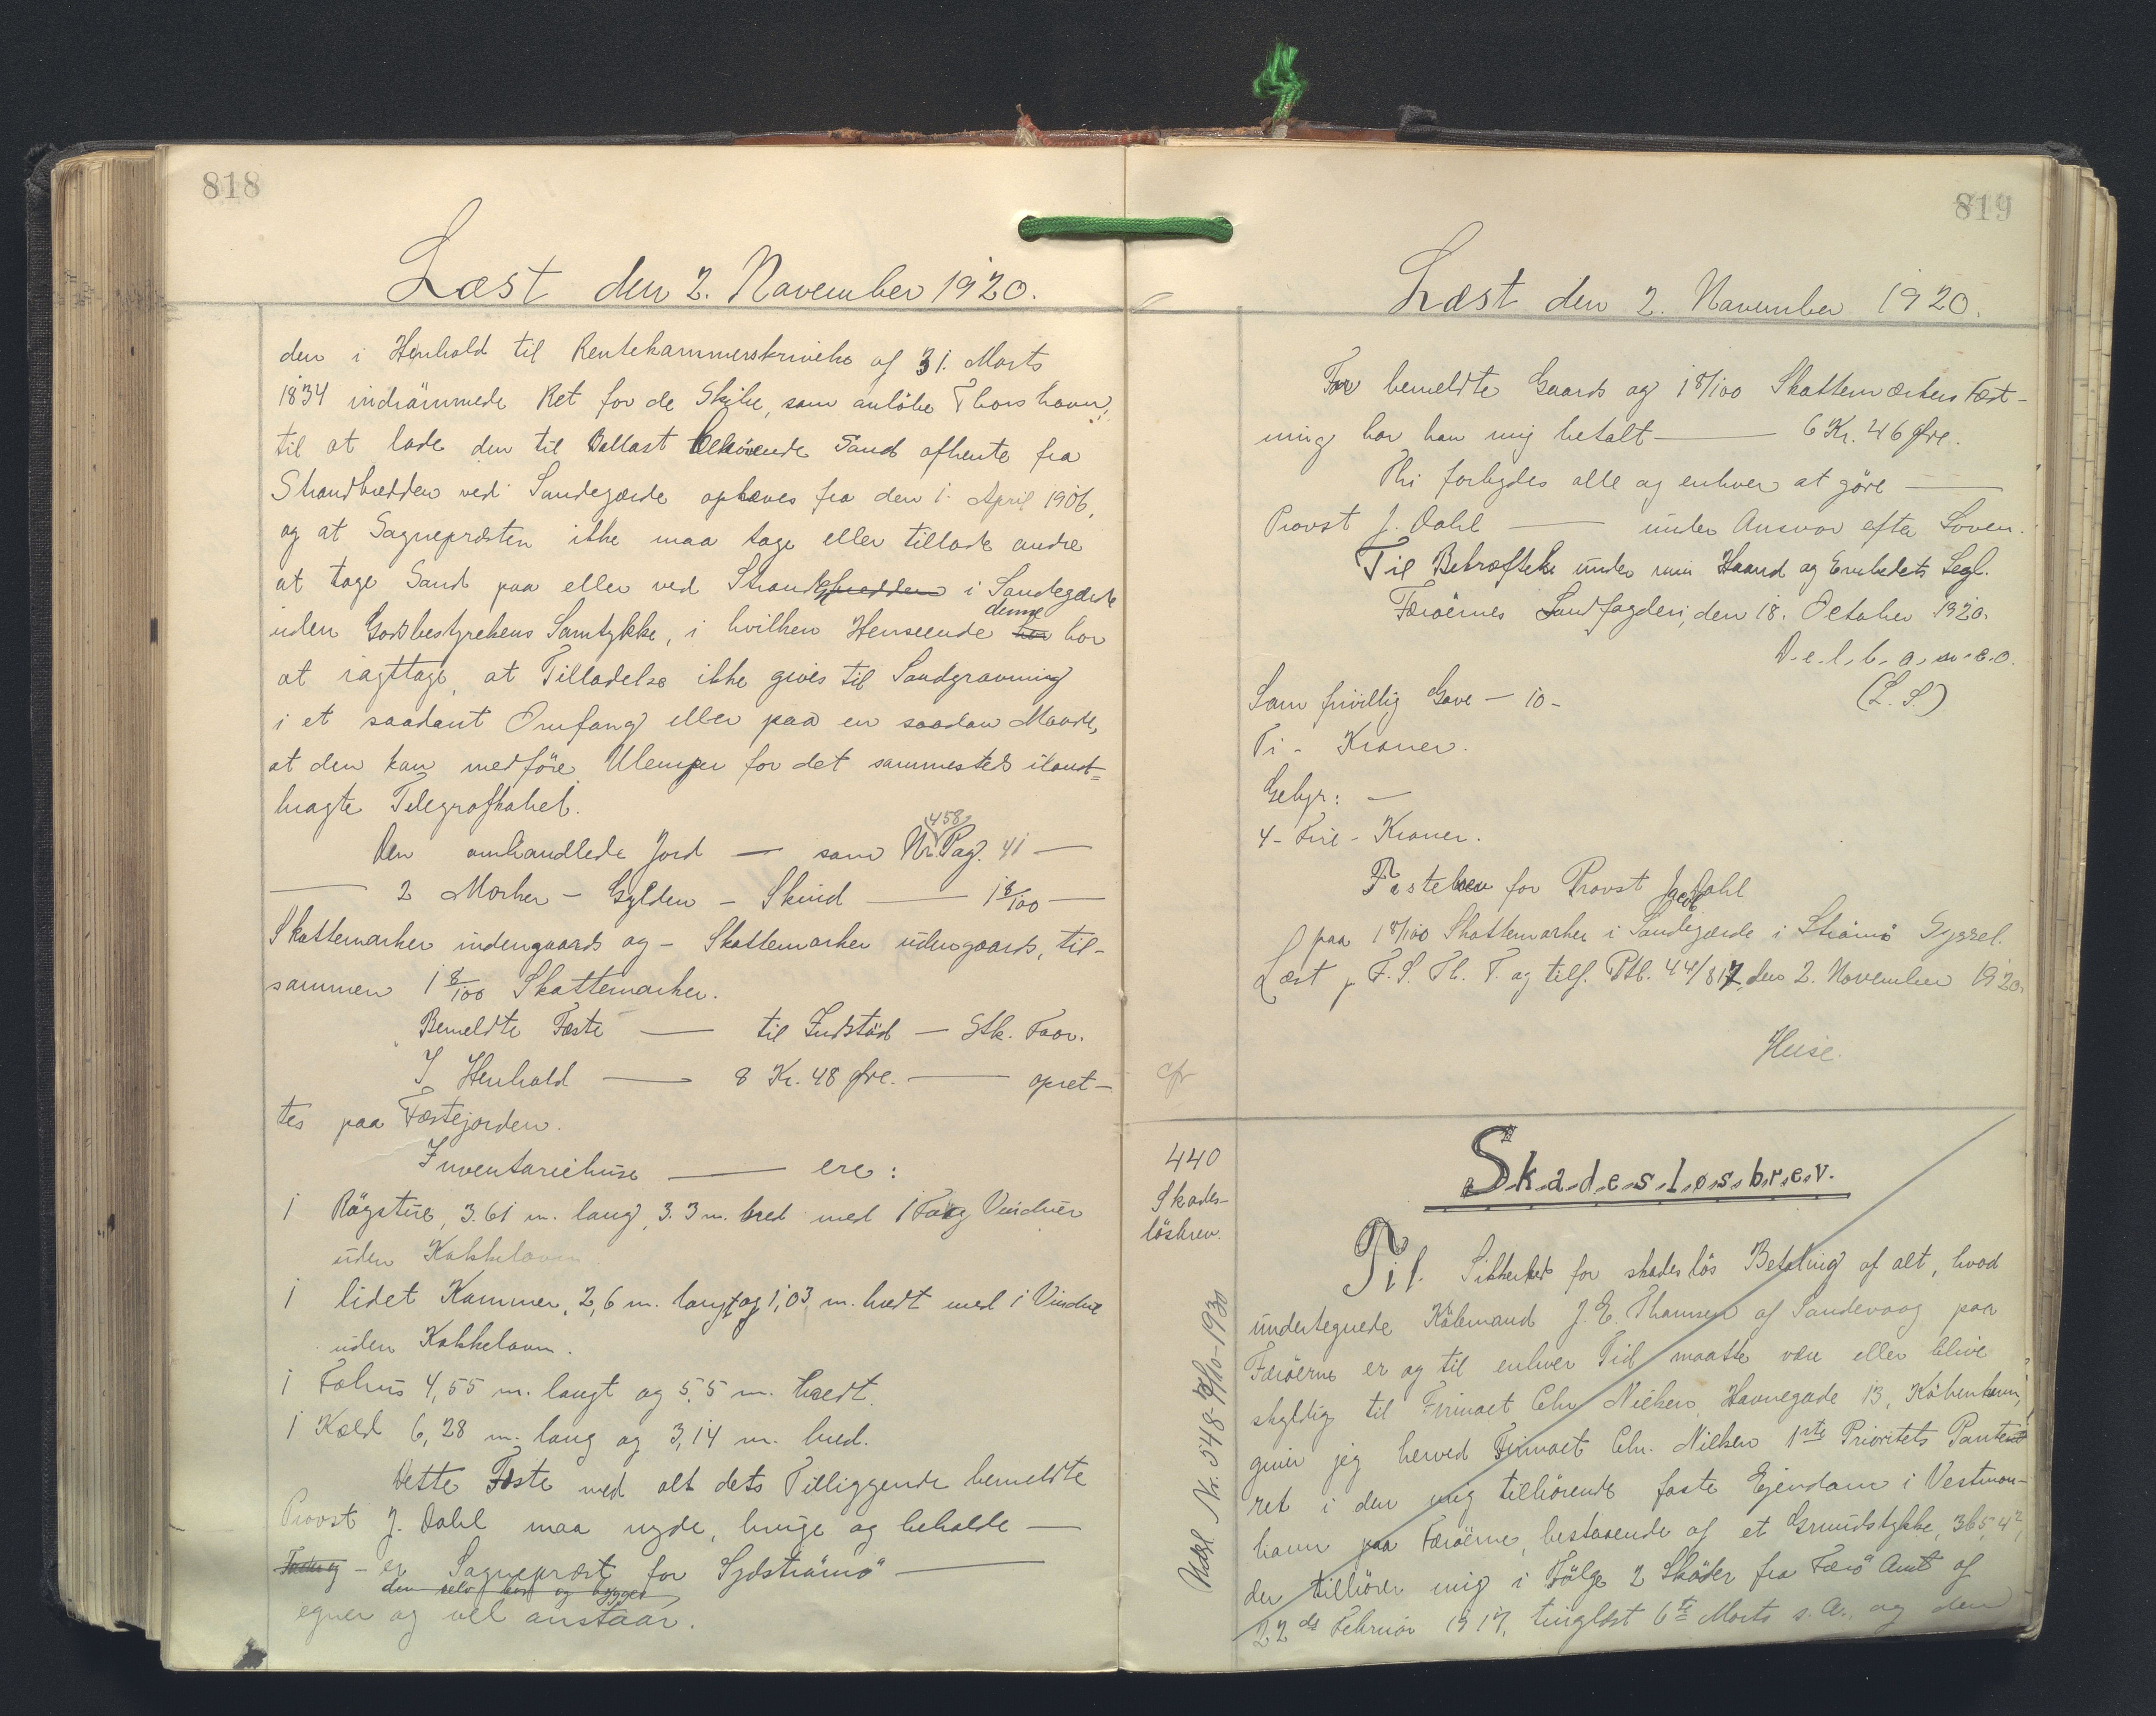 818
Læst den 2. November 1920.
den i Henhold til Rentekammerskrivelse af 31. Marts
1834 indrömmede Ret for de Skibe, som anløbe Thorshavn,
til at lade den til Ballast behövende Sand afhente fra
Strandbredden ved Sandegærde ophæves fra den 1. April 1906,
og at Sognepræsten ikke maa tage eller tillade andre
at tage Sand paa eller ved Strandbredden i Sandegærde
uden Godsbestyrelsens Samtykke, i hvilken Henseende denne har
at iagttage, at Tilladelse ikke gives til Sandgravning
i et saadant Omfang eller paa en saadan Maade,
at den kan medföre Ulemper for det sammesteds iland-
bragte Telegrafkabel.
Den omhandlede Jord — som Nr. 458 Pag. 41 —
— 2 Marker – Gylden – Skind — 1 8/100 —
Skattemarker indengaards og – Skattemarker udengaards, til-
sammen 1 8/100 Skattemarker.
Bemeldte Fæste — til Indstöd — Stk. Faar.
I Henhold — 8 Kr. 48 Øre. — opret-
tes paa Fæstejorden.
Inventariehuse — ere:
1 Rögstue, 3.61 m. lang, 3.3 m. bred med 1 Fag Vinduer
uden Kakkelovn
1 lidet Kammer, 2,6 m. langt og 1,03 m. bredt med 1 Vindue
uden Kakkelovn.
1 Fæhus 4,55 m. langt og 5,5 m. bredt.
1 Kæld 6,28 m. lang og 3,14 m. bred.
Dette Fæste med alt dets Tilliggende bemeldte
Provst J. Dahl maa nyde, bruge og beholde —
– er Sognepræst for Sydströmö —
den selv og bygger
egner og vel anstaar.
819
Læst den 2. November 1920.
For bemeldte Gaards og 1 8/100 Skattemarkers Fæst-
ning har han mig betalt — 6 Kr. 46 Øre.
Thi forbydes alle og enhver at göre —
Provst J. Dahl — under Ansvar efter Loven.
Til Bekræftelse under min Haand og Embedets Segl.
Færöernes Landfogderi, den 18. October 1920.
D.e.l.b.a.n.c.o.
(L. S.)
Som frivillig Gave — 10 –
Ti – Kroner.
Gebyr: —
4 – Fire – Kroner.
Fæstebrev for Provst Jacob Dahl
paa 1 8/100 Skattemarker i Sandegærde i Strömö Syssel.
Læst p. F. S. Th. T. og tilf. Ptb. 44/817, den 2. November 1920.
Heise.
cfr
440
Skades-
lösbrev.
Udsl. Nr. 548 – 1930
S.k.a.d.e.s.l.ø.s.b.r.e.v.
Til Sikkerhed for skadeslös Betaling af alt, hvad
undertegnede Köbmand J. E. Thomsen af Sandevaag paa
Færöerne er og til enhver Tid maatte være eller blive
skyldig til Firmaet Chr. Nielsen, Havnegade 13, Köbenhavn,
giver jeg herved Firmaet Chr. Nielsen 1ste Prioritets Pante-
ret i den mig tilhörende faste Ejendom i Vestman-
havn paa Færöerne, bestaaende af et Grundstykke, 365,4²,
der tilhörer mig i Fölge 2 Sköder fra Færö Amt af
22de Februar 1917, tinglæst 6te Marts s. A., og den